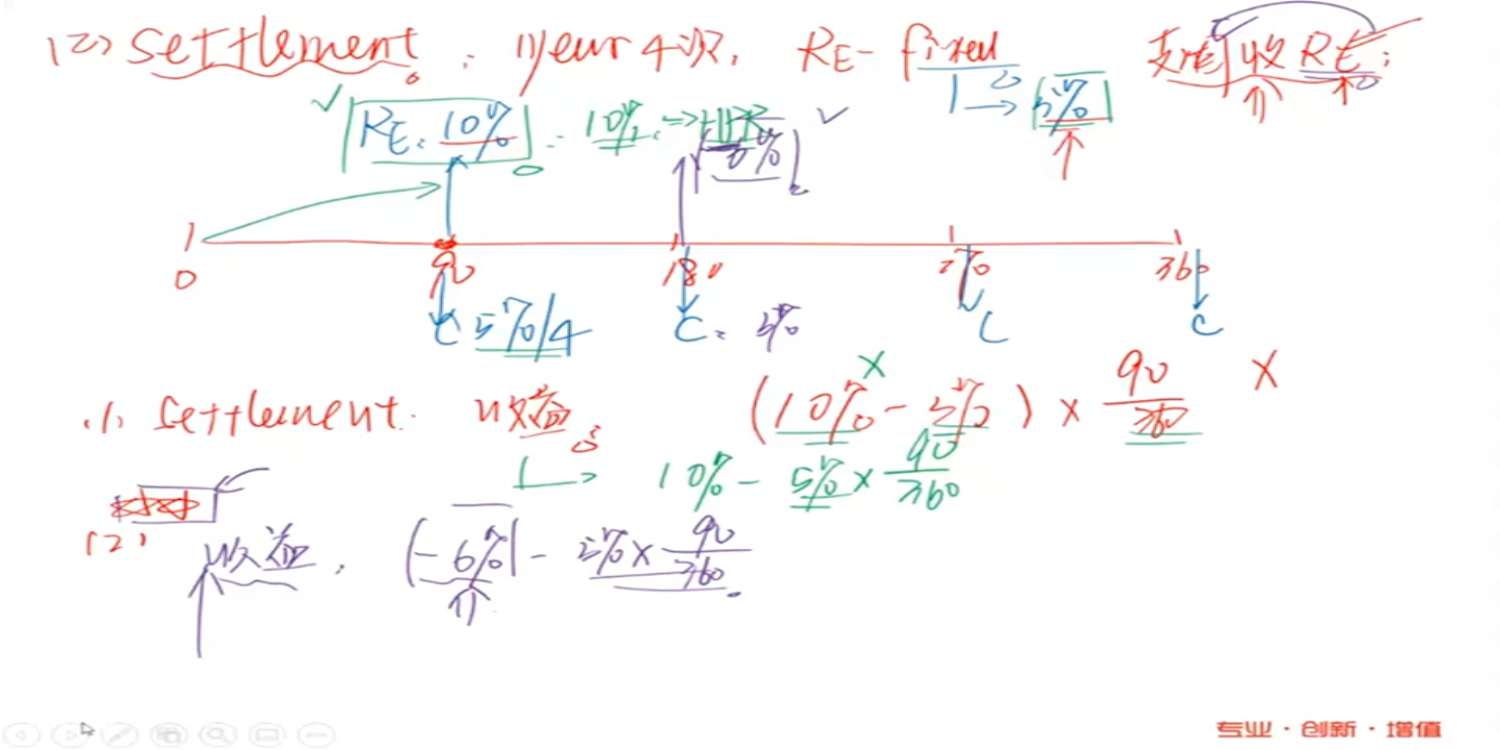 (2) Settlement : 1year 4次, RE- fixed 支固 收 RE;
RE: 10% = 10% => HPR 5%
-6%
0 90 180 270 360
C 5%/4 C: 5% C C
(1) Settlement. 收益 (10% - 5%) × 90/360 ×
10% - 5% × 90/360
(2) 收益: (-6%) - 5% × 90/360
专业·创新·增值